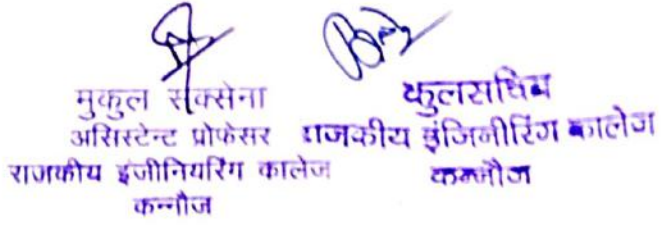 मुकुल सक्सेना
असिस्टेन्ट प्रोफेसर
राजकीय इंजीनियरिंग कालेज
कन्नौज
कुलसचिव
राजकीय इंजिनीरिंग कालेज
कन्नौज